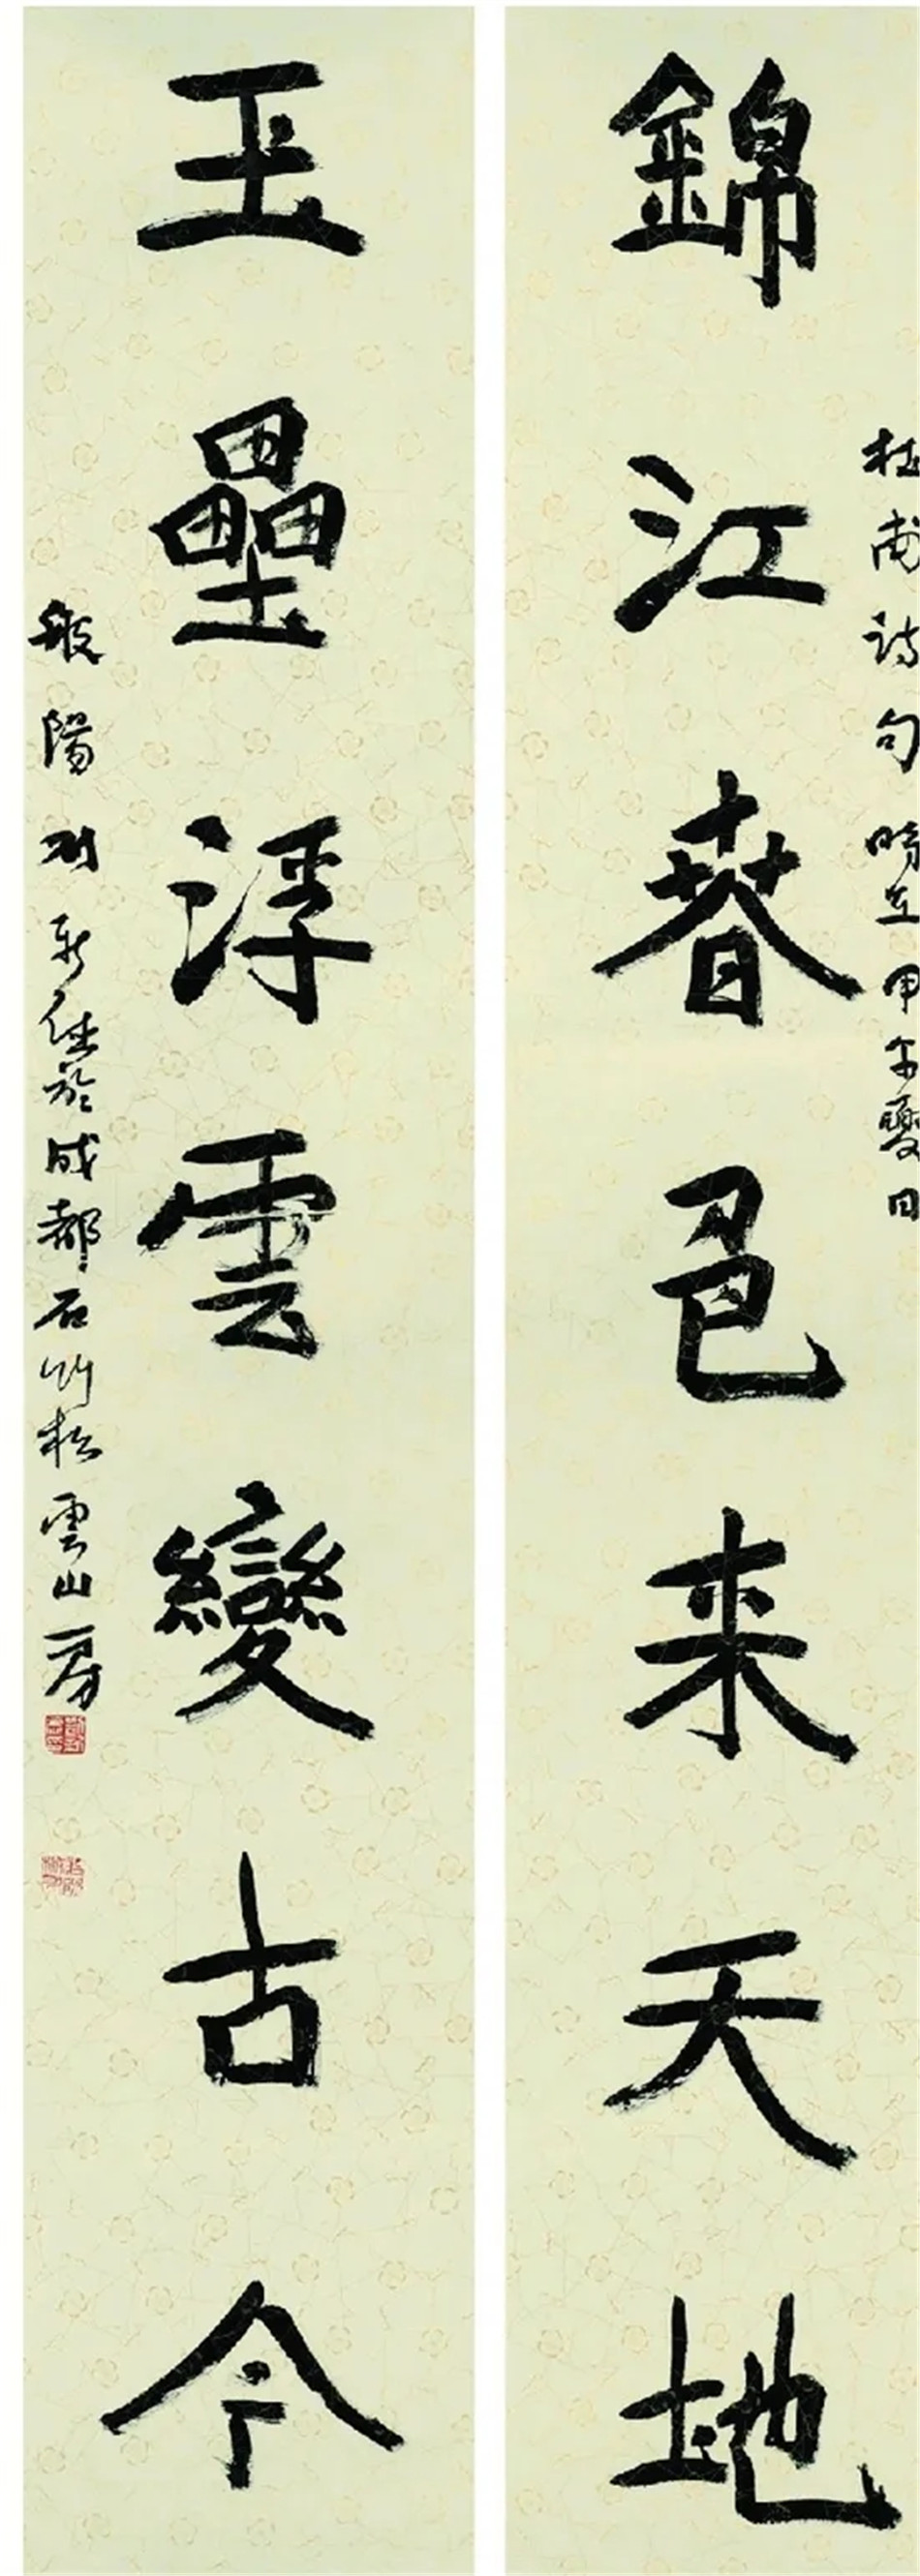 錦江春色来天地
杜甫詩句時在甲午夏日
玉壘浮雲變古今
般陽刘新德於成都石竹松雲山房